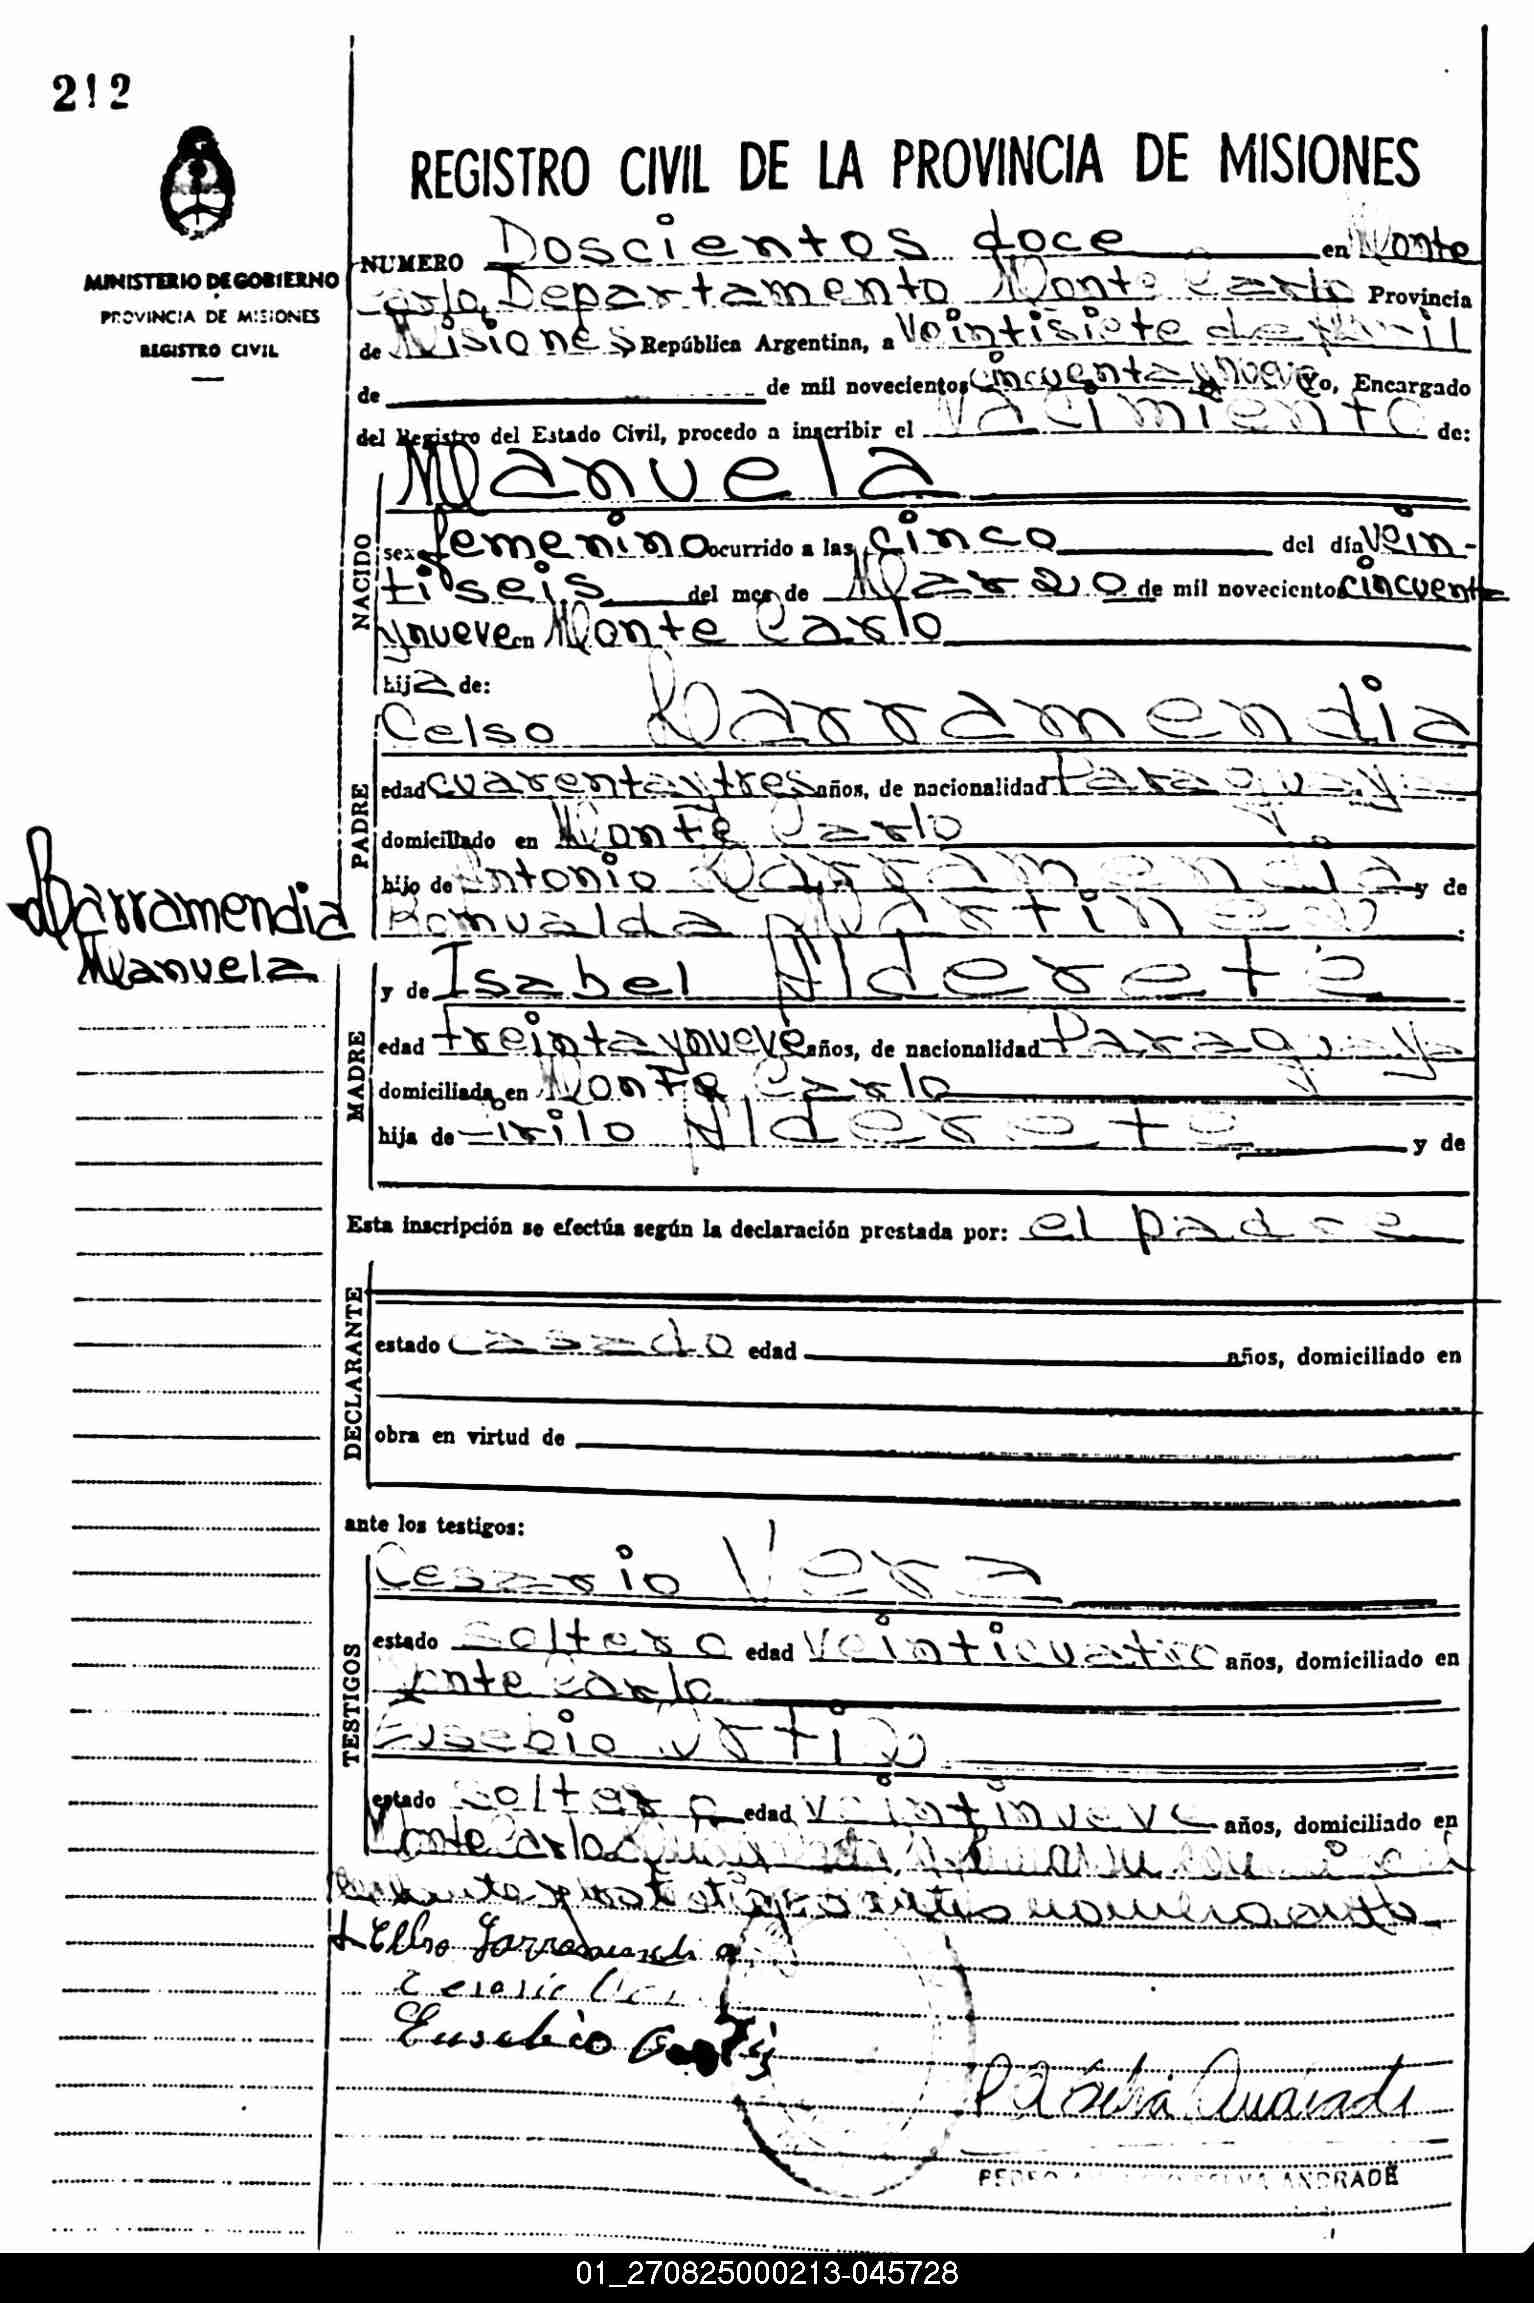 212
MINISTERIO DE GOBIERNO
PROVINCIA DE MISIONES
REGISTRO CIVIL
REGISTRO CIVIL DE LA PROVINCIA DE MISIONES
NUMERO Doscientos doce en Monte
Carlo, Departamento Monte Carlo Provincia
de Misiones República Argentina, a Veintisiete de Abril
de de mil novecientos cincuenta y nueve Yo, Encargado
del Registro del Estado Civil, procedo a inscribir el Nacimiento de:
NACIDO
Manuela
sexo femenino ocurrido a las cinco del día Vein-
ti seis del mes de Marzo de mil novecientos cincuenta
y nueve en Monte Carlo
hija de:
PADRE
Celso Larramendia
edad cuarenta y tres años, de nacionalidad Paraguaya
domiciliado en Monte Carlo
hijo de Antonio Larramendia y de
Romualda Martinez
Larramendia
Manuela
MADRE
y de Isabel Alderete
edad treinta y nueve años, de nacionalidad Paraguaya
domiciliada en Monte Carlo
hija de Cirilo Alderete y de
Esta inscripción se efectúa según la declaración prestada por: el padre
DECLARANTE
estado casado edad años, domiciliado en
obra en virtud de
ante los testigos:
TESTIGOS
Cesario Vera
estado soltero edad veinticuatro años, domiciliado en
Monte Carlo
Eusebio Ortiz
estado soltero edad veintinueve años, domiciliado en
Monte Carlo
testigos antes nombrados
Larramendia
Cesario
Eusebio Ortiz
PEDRO SILVA ANDRADE
01_270825000213-045728